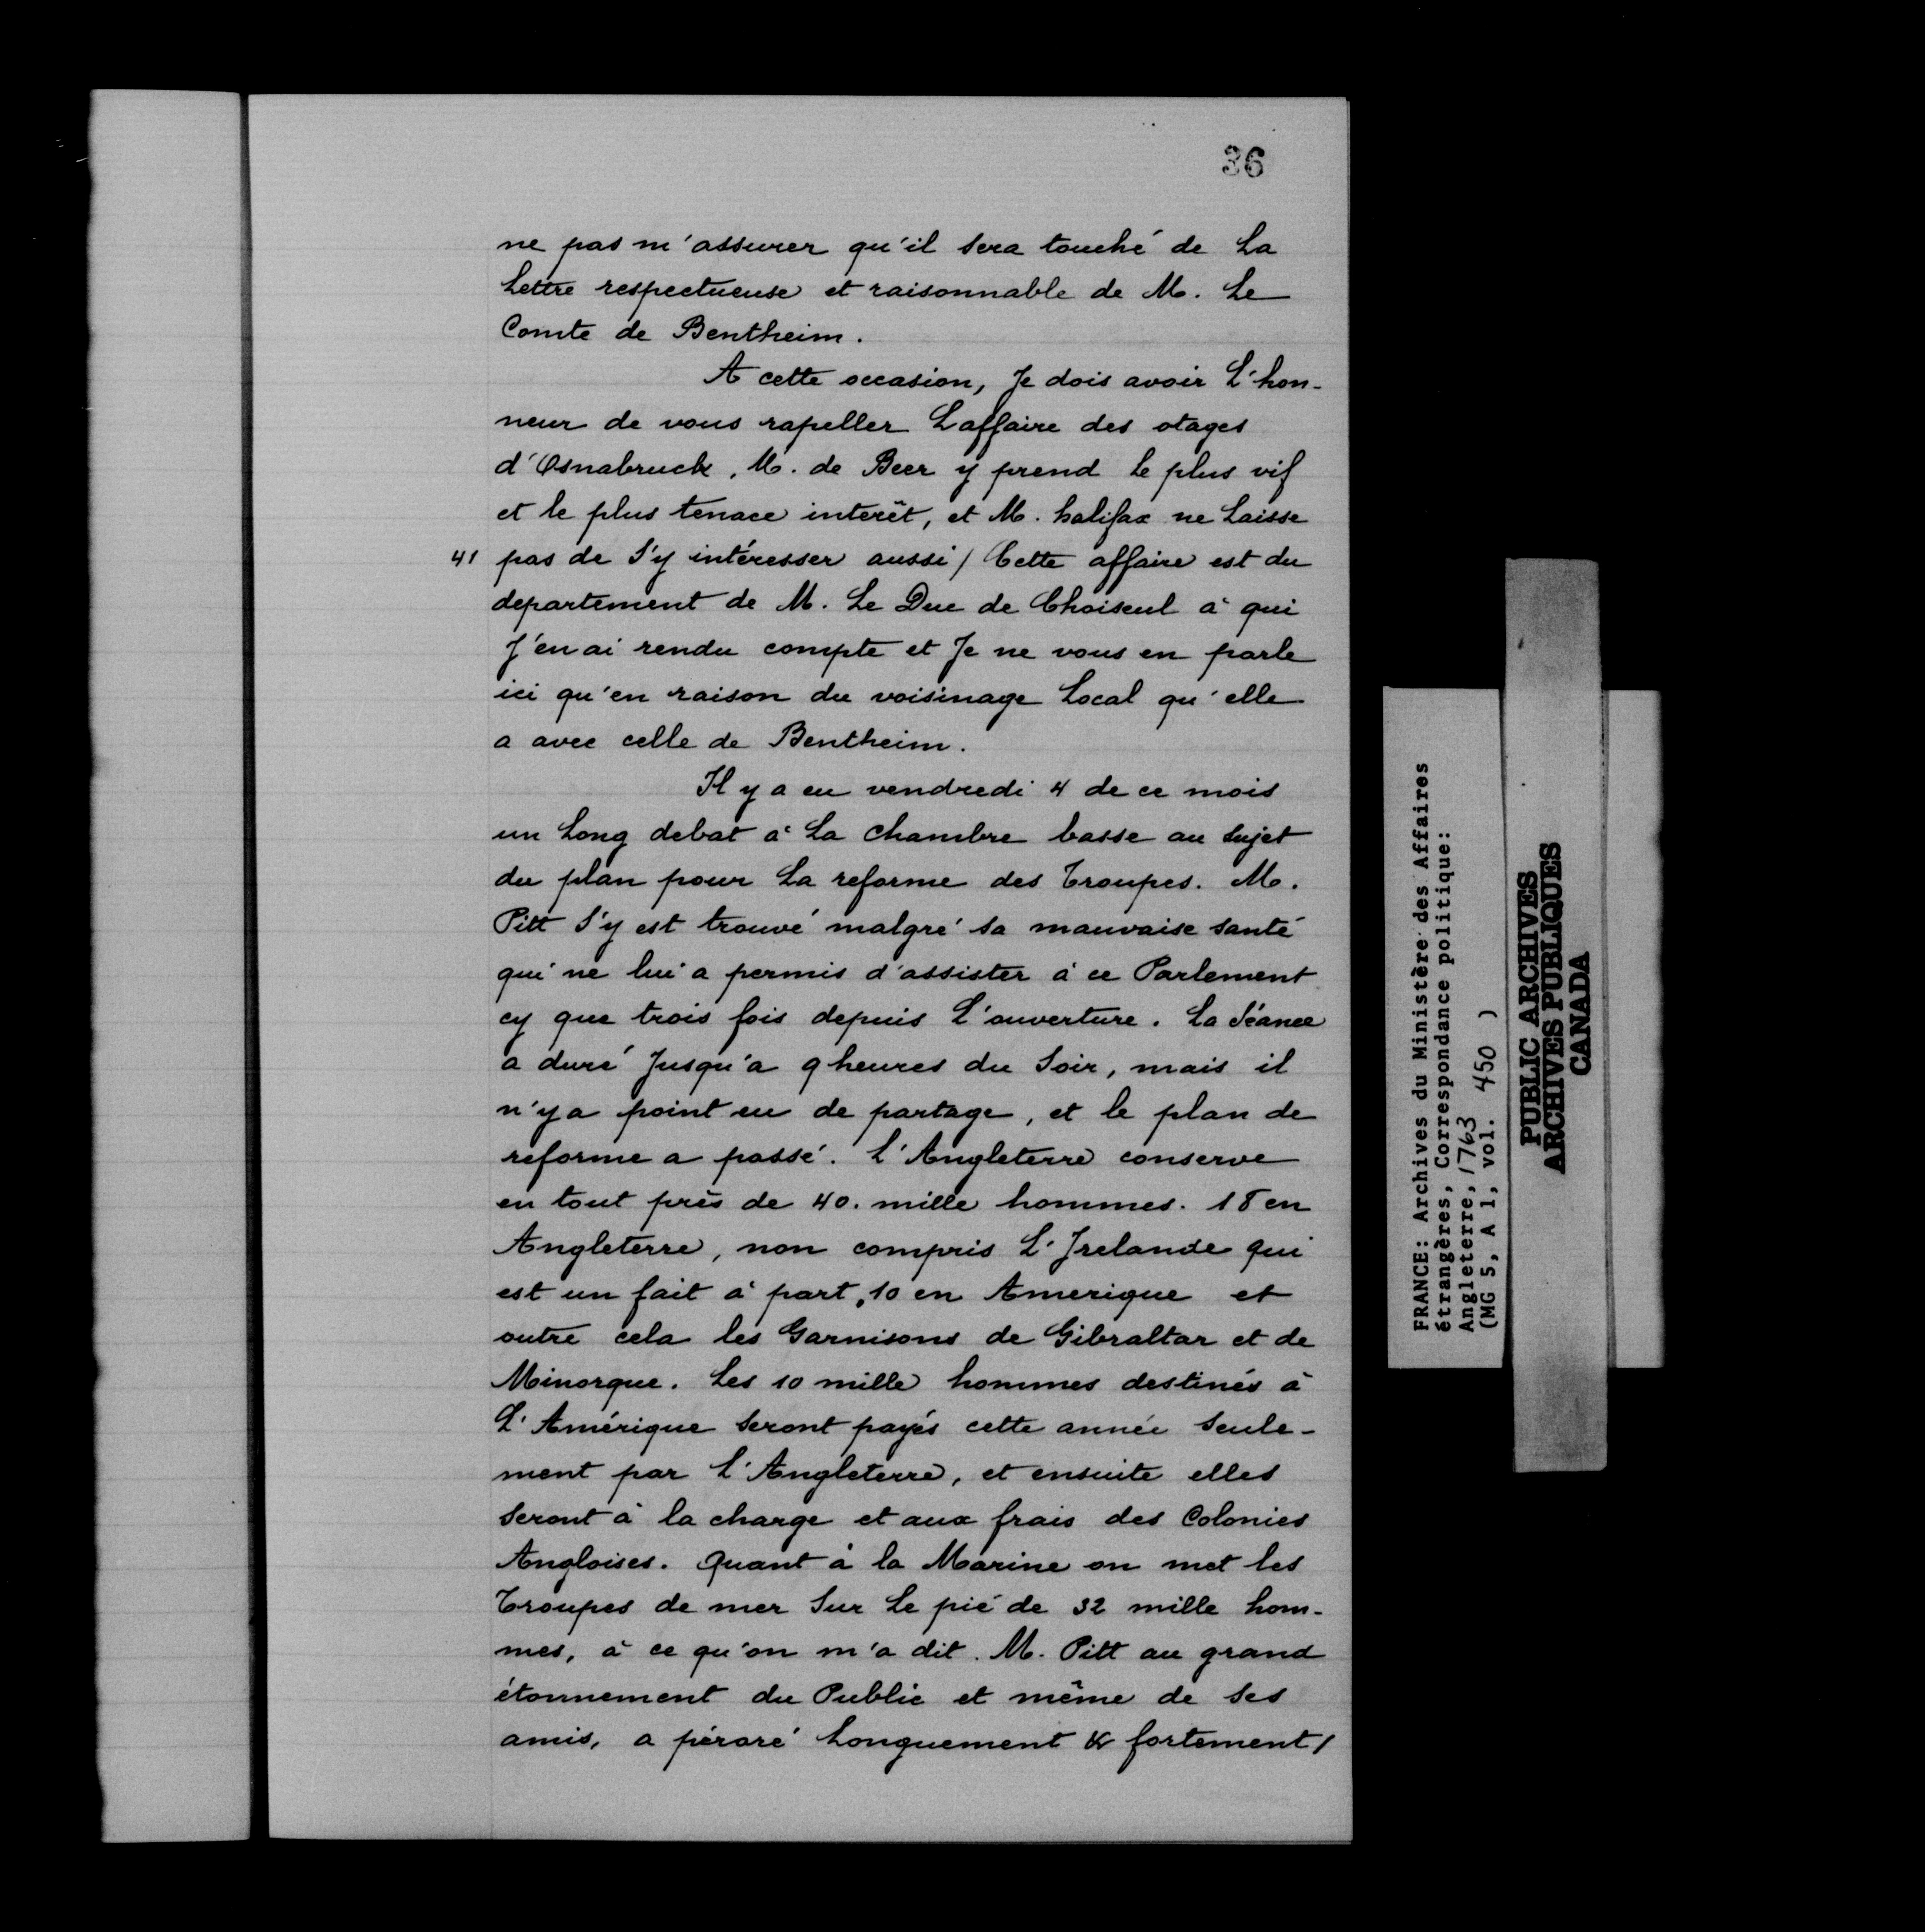 36
ne pas m'assurer qu'il sera touché de La
Lettre respectueuse et raisonnable de M. Le
Comte de Bentheim.
A cette occasion, Je dois avoir L'hon-
neur de vous rapeller Laffaire des otages
d'Osnabruck, M. de Beer y prend le plus vif
et le plus tenace interêt, et M. halifax ne Laisse
41 pas de S'y intéresser aussi / Cette affaire est du
departement de M. Le Duc de Choiseul à qui
J'en ai rendu compte et Je ne vous en parle
ici qu'en raison du voisinage Local qu'elle
a avec celle de Bentheim.
Il y a eu vendredi 4 de ce mois
un Long debat à La Chambre basse au Sujet
du plan pour La reforme des Troupes. M.
Pitt S'y est trouvé malgré sa mauvaise santé
qui ne lui a permis d'assister à ce Parlement
cy que trois fois depuis L'ouverture. La Séance
a duré Jusqu'a 9 heures du Soir, mais il
n'y a point eu de partage, et le plan de
reforme a passé. L'Angleterre conserve
en tout près de 40. mille hommes. 18 en
Angleterre, non compris L'Irelande qui
est un fait à part, 10 en Amerique et
outre cela les Garnisons de Gibraltar et de
Minorque. Les 10 mille hommes destinés à
L'Amérique Seront payés cette année Seule-
ment par L'Angleterre, et ensuite elles
Seront à la charge et aux frais des Colonies
Angloises. Quant à la Marine on met les
Troupes de mer Sur Le pié de 32 mille hom-
mes, à ce qu'on m'a dit. M. Pitt au grand
étonnement du Public et même de Ses
amis, a péroré Longuement & fortement /
FRANCE: Archives du Ministère des Affaires
étrangères, Correspondance politique:
Angleterre, 1763
(MG 5, A 1, vol. 450 )
PUBLIC ARCHIVES
ARCHIVES PUBLIQUES
CANADA